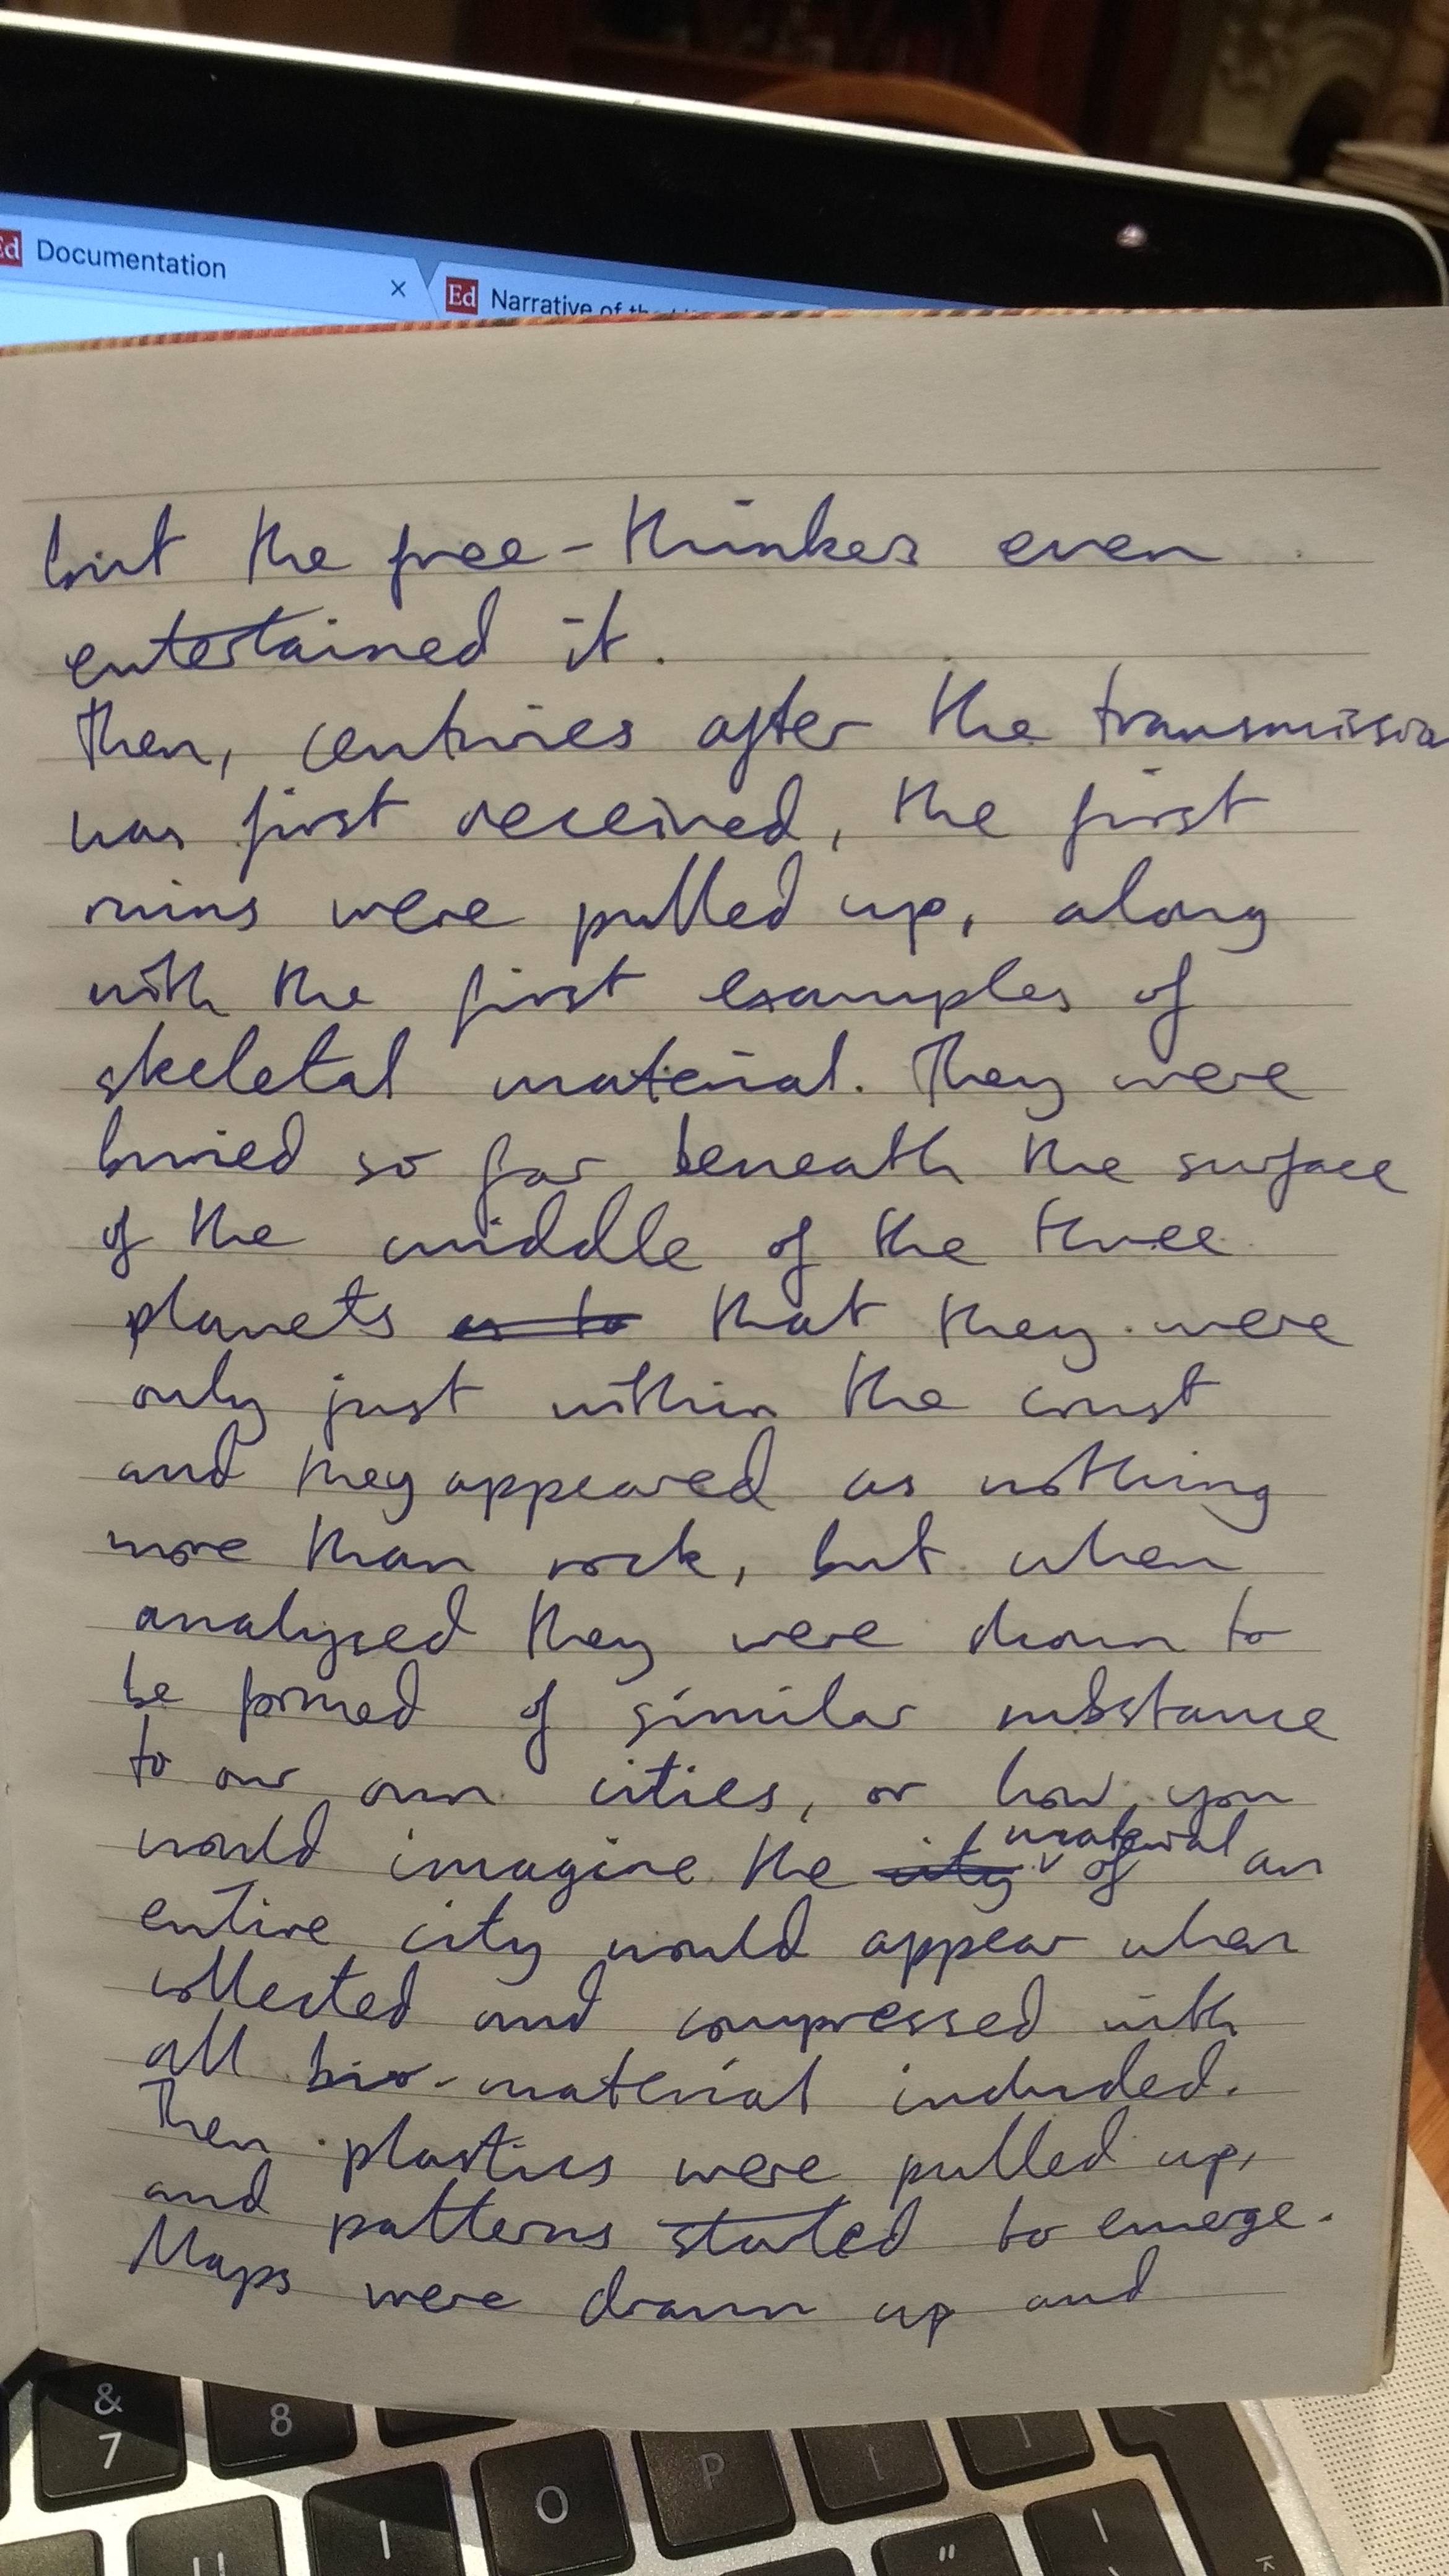 Documentation
Ed Narrative of
but the free-thinkers even
entertained it.
Then, centuries after the transmission
was first received, the first
ruins were pulled up, along
with the first examples of
skeletal material. They were
buried so far beneath the surface
of the middle of the three
planets that they were
only just within the crust
and they appeared as nothing
more than rock, but when
analysed they were shown to
be formed of similar substance
to our own cities, or how you
would imagine the material of an
entire city would appear when
collected and compressed with
all bio-material included.
Then plastics were pulled up,
and patterns started to emerge.
Maps were drawn up and
&
7
8
O
P
[
]
U
I
"